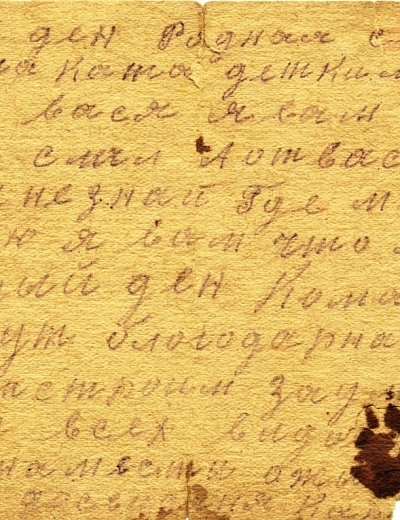 ден Родная с
на Катя деткам
вася я вам
слал А от вас
незнай Где м
ю я вам что
ый ден Кома
ут блогодарна
астроим зау
всех види